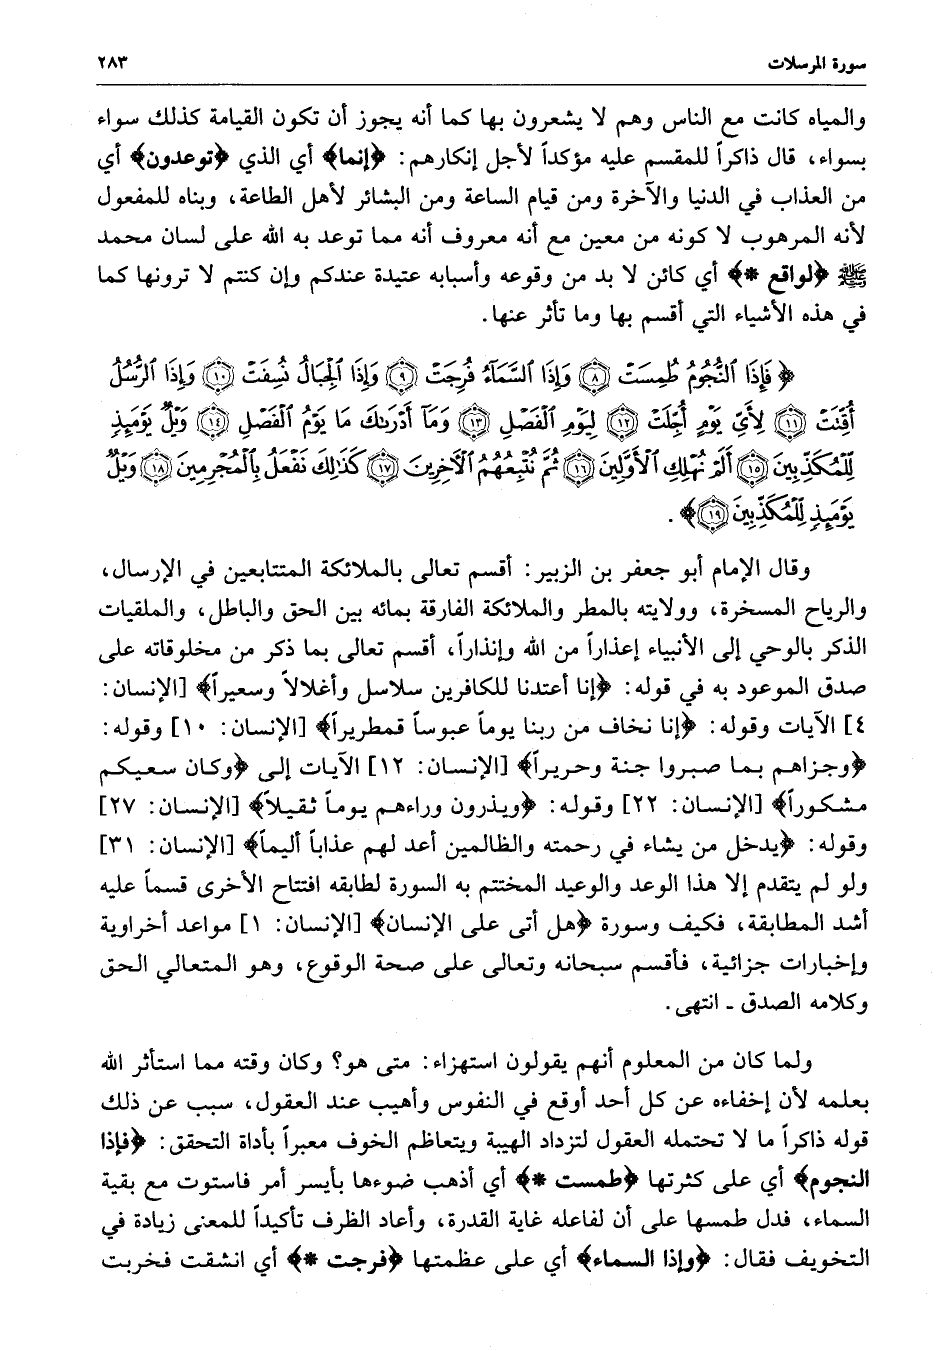 سورة المرسلات ٢٨٣
والمياه كانت مع الناس وهم لا يشعرون بها كما أنه يجوز أن تكون القيامة كذلك سواء
بسواء، قال ذاكراً للمقسم عليه مؤكداً لأجل إنكارهم: ﴿إنما﴾ أي الذي ﴿توعدون﴾ أي
من العذاب في الدنيا والآخرة ومن قيام الساعة ومن البشائر لأهل الطاعة، وبناه للمفعول
لأنه المرهوب لا كونه من معين مع أنه معروف أنه مما توعد به الله على لسان محمد
ﷺ ﴿لواقع *﴾ أي كائن لا بد من وقوعه وأسبابه عتيدة عندكم وإن كنتم لا ترونها كما
في هذه الأشياء التي أقسم بها وما تأثر عنها.
﴿ فَإِذَا ٱلنُّجُومُ طُمِسَتْ ۝٨ وَإِذَا ٱلسَّمَآءُ فُرِجَتْ ۝٩ وَإِذَا ٱلْجِبَالُ نُسِفَتْ ۝١٠ وَإِذَا ٱلرُّسُلُ
أُقِّتَتْ ۝١١ لِأَيِّ يَوْمٍ أُجِّلَتْ ۝١٢ لِيَوْمِ ٱلْفَصْلِ ۝١٣ وَمَآ أَدْرَىٰكَ مَا يَوْمُ ٱلْفَصْلِ ۝١٤ وَيْلٌ يَوْمَئِذٍ
لِّلْمُكَذِّبِينَ ۝١٥ أَلَمْ نُهْلِكِ ٱلْأَوَّلِينَ ۝١٦ ثُمَّ نُتْبِعُهُمُ ٱلْآخِرِينَ ۝١٧ كَذَٰلِكَ نَفْعَلُ بِٱلْمُجْرِمِينَ ۝١٨ وَيْلٌ
يَوْمَئِذٍ لِّلْمُكَذِّبِينَ ۝١٩﴾.
وقال الإمام أبو جعفر بن الزبير: أقسم تعالى بالملائكة المتتابعين في الإرسال،
والرياح المسخرة، وولايته بالمطر والملائكة الفارقة بمائه بين الحق والباطل، والملقيات
الذكر بالوحي إلى الأنبياء إعذاراً من الله وإنذاراً، أقسم تعالى بما ذكر من مخلوقاته على
صدق الموعود به في قوله: ﴿إنا أعتدنا للكافرين سلاسل وأغلالاً وسعيراً﴾ [الإنسان:
٤] الآيات وقوله: ﴿إنا نخاف من ربنا يوماً عبوساً قمطريراً﴾ [الإنسان: ١٠] وقوله:
﴿وجزاهم بما صبروا جنة وحريراً﴾ [الإنسان: ١٢] الآيات إلى ﴿وكان سعيكم
مشكوراً﴾ [الإنسان: ٢٢] وقوله: ﴿ويذرون وراءهم يوماً ثقيلاً﴾ [الإنسان: ٢٧]
وقوله: ﴿يدخل من يشاء في رحمته والظالمين أعد لهم عذاباً أليماً﴾ [الإنسان: ٣١]
ولو لم يتقدم إلا هذا الوعد والوعيد المختتم به السورة لطابقه افتتاح الأخرى قسماً عليه
أشد المطابقة، فكيف وسورة ﴿هل أتى على الإنسان﴾ [الإنسان: ١] مواعد أخراوية
وإخبارات جزائية، فأقسم سبحانه وتعالى على صحة الوقوع، وهو المتعالي الحق
وكلامه الصدق ـ انتهى.
ولما كان من المعلوم أنهم يقولون استهزاء: متى هو؟ وكان وقته مما استأثر الله
بعلمه لأن إخفاءه عن كل أحد أوقع في النفوس وأهيب عند العقول، سبب عن ذلك
قوله ذاكراً ما لا تحتمله العقول لتزداد الهيبة ويتعاظم الخوف معبراً بأداة التحقق: ﴿فإذا
النجوم﴾ أي على كثرتها ﴿طمست *﴾ أي أذهب ضوءها بأيسر أمر فاستوت مع بقية
السماء، فدل طمسها على أن لفاعله غاية القدرة، وأعاد الظرف تأكيداً للمعنى زيادة في
التخويف فقال: ﴿وإذا السماء﴾ أي على عظمتها ﴿فرجت *﴾ أي انشقت فخربت